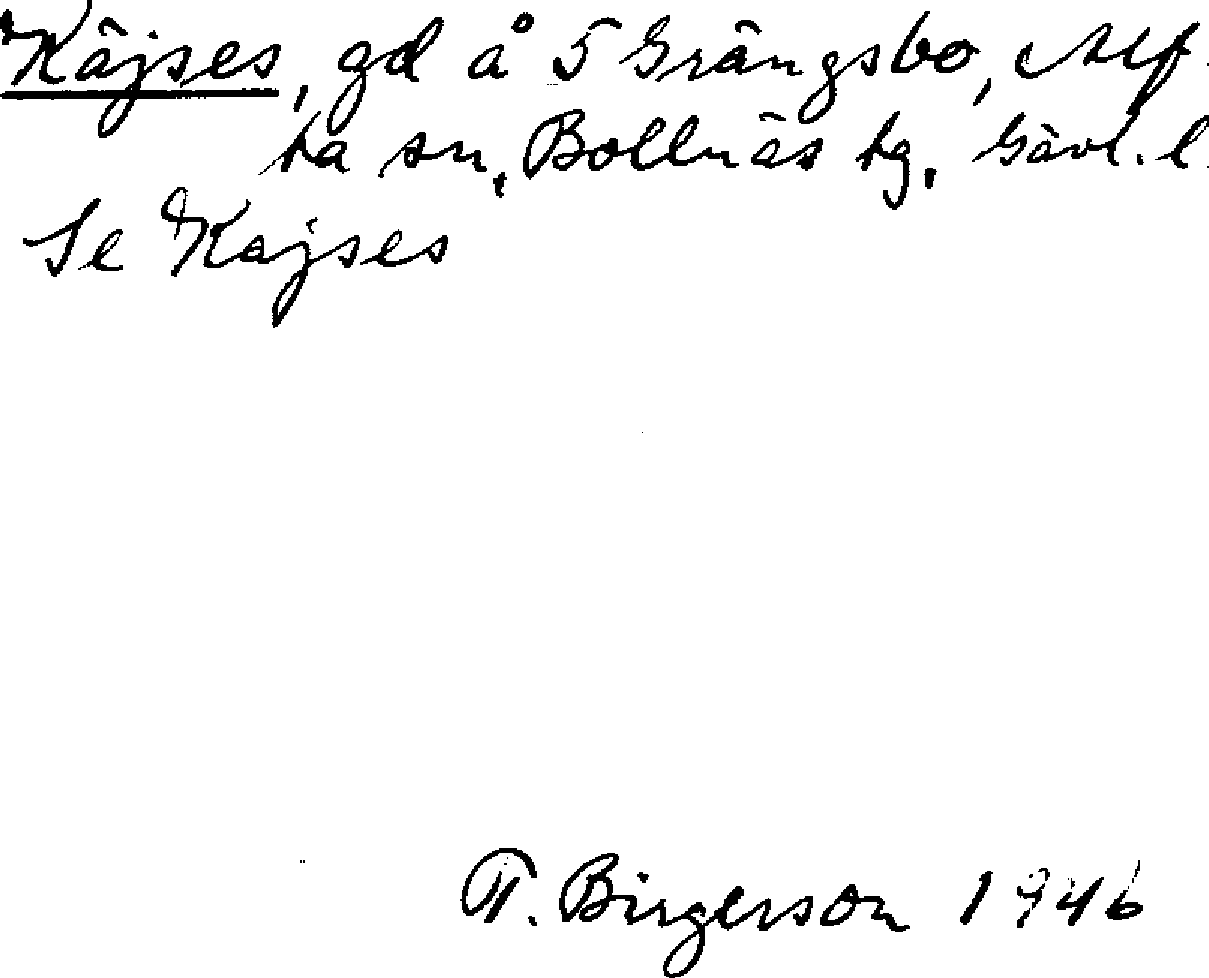 Käjses, gd å 5 Grängsbo, Alf-
ta sn, Bollnäs tg, Gävl. l.
Se Kajses
T. Birgerson 1946